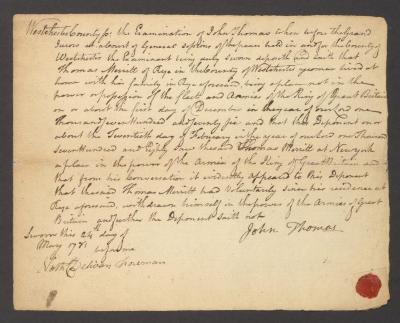 Westchester County ss: the Examination of John Thomas taken before the Grand
Jurors at a Court of General Sessions of the peace held in and for the County of
Westchester the Examinant being duly Sworn deposeth and saith that
Thomas Merrill of Rye in the County of Westchester yeoman lived at
home with his family in Rye aforesaid, being a place not in the
power or possession of the Fleets and Armies of the King of Great Britain
on or about the first day of December in the year of our Lord one
Thousand Seven Hundred and Seventy six and that this Deponent on or
about the Twentieth day of February in the year of our Lord one Thousand
Seven Hundred and Eighty one the said Thomas Merrill at Newyork
a place in the power of the Armies of the King of Great Britain and
that from his Conversation it evidently appeared to this Deponent
that the said Thomas Merrill had Voluntarily Since his residence at
Rye aforesaid, withdrawn himself in the power of the Armies of Great
Britain and further the Deponent saith not
Sworn this 24th day of
May 1781 before me
John Thomas
Nath Delivan Foreman